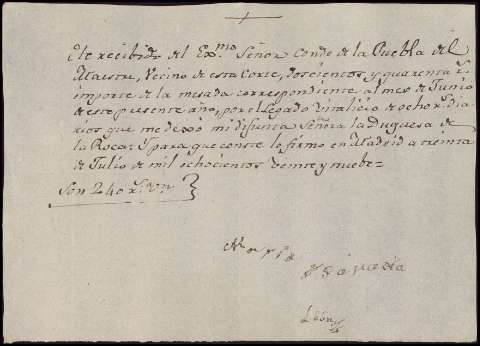 He recibido del Exmo Señor Conde de la Puebla del
Maestre, Vecino de esta Corte, doscientos, y quarenta rs.
importe de la mesada correspondiente al mes de Junio
de este presente año, por el Legado Vitalicio de ocho rs. dia
rios que me dexó mi difunta Señora la Duquesa de
la Roca: Y para que conste lo firmo en Madrid a treinta
de Julio de mil ochocientos veinte y nuebe=
Son 240 rs. Vn
Maria
León